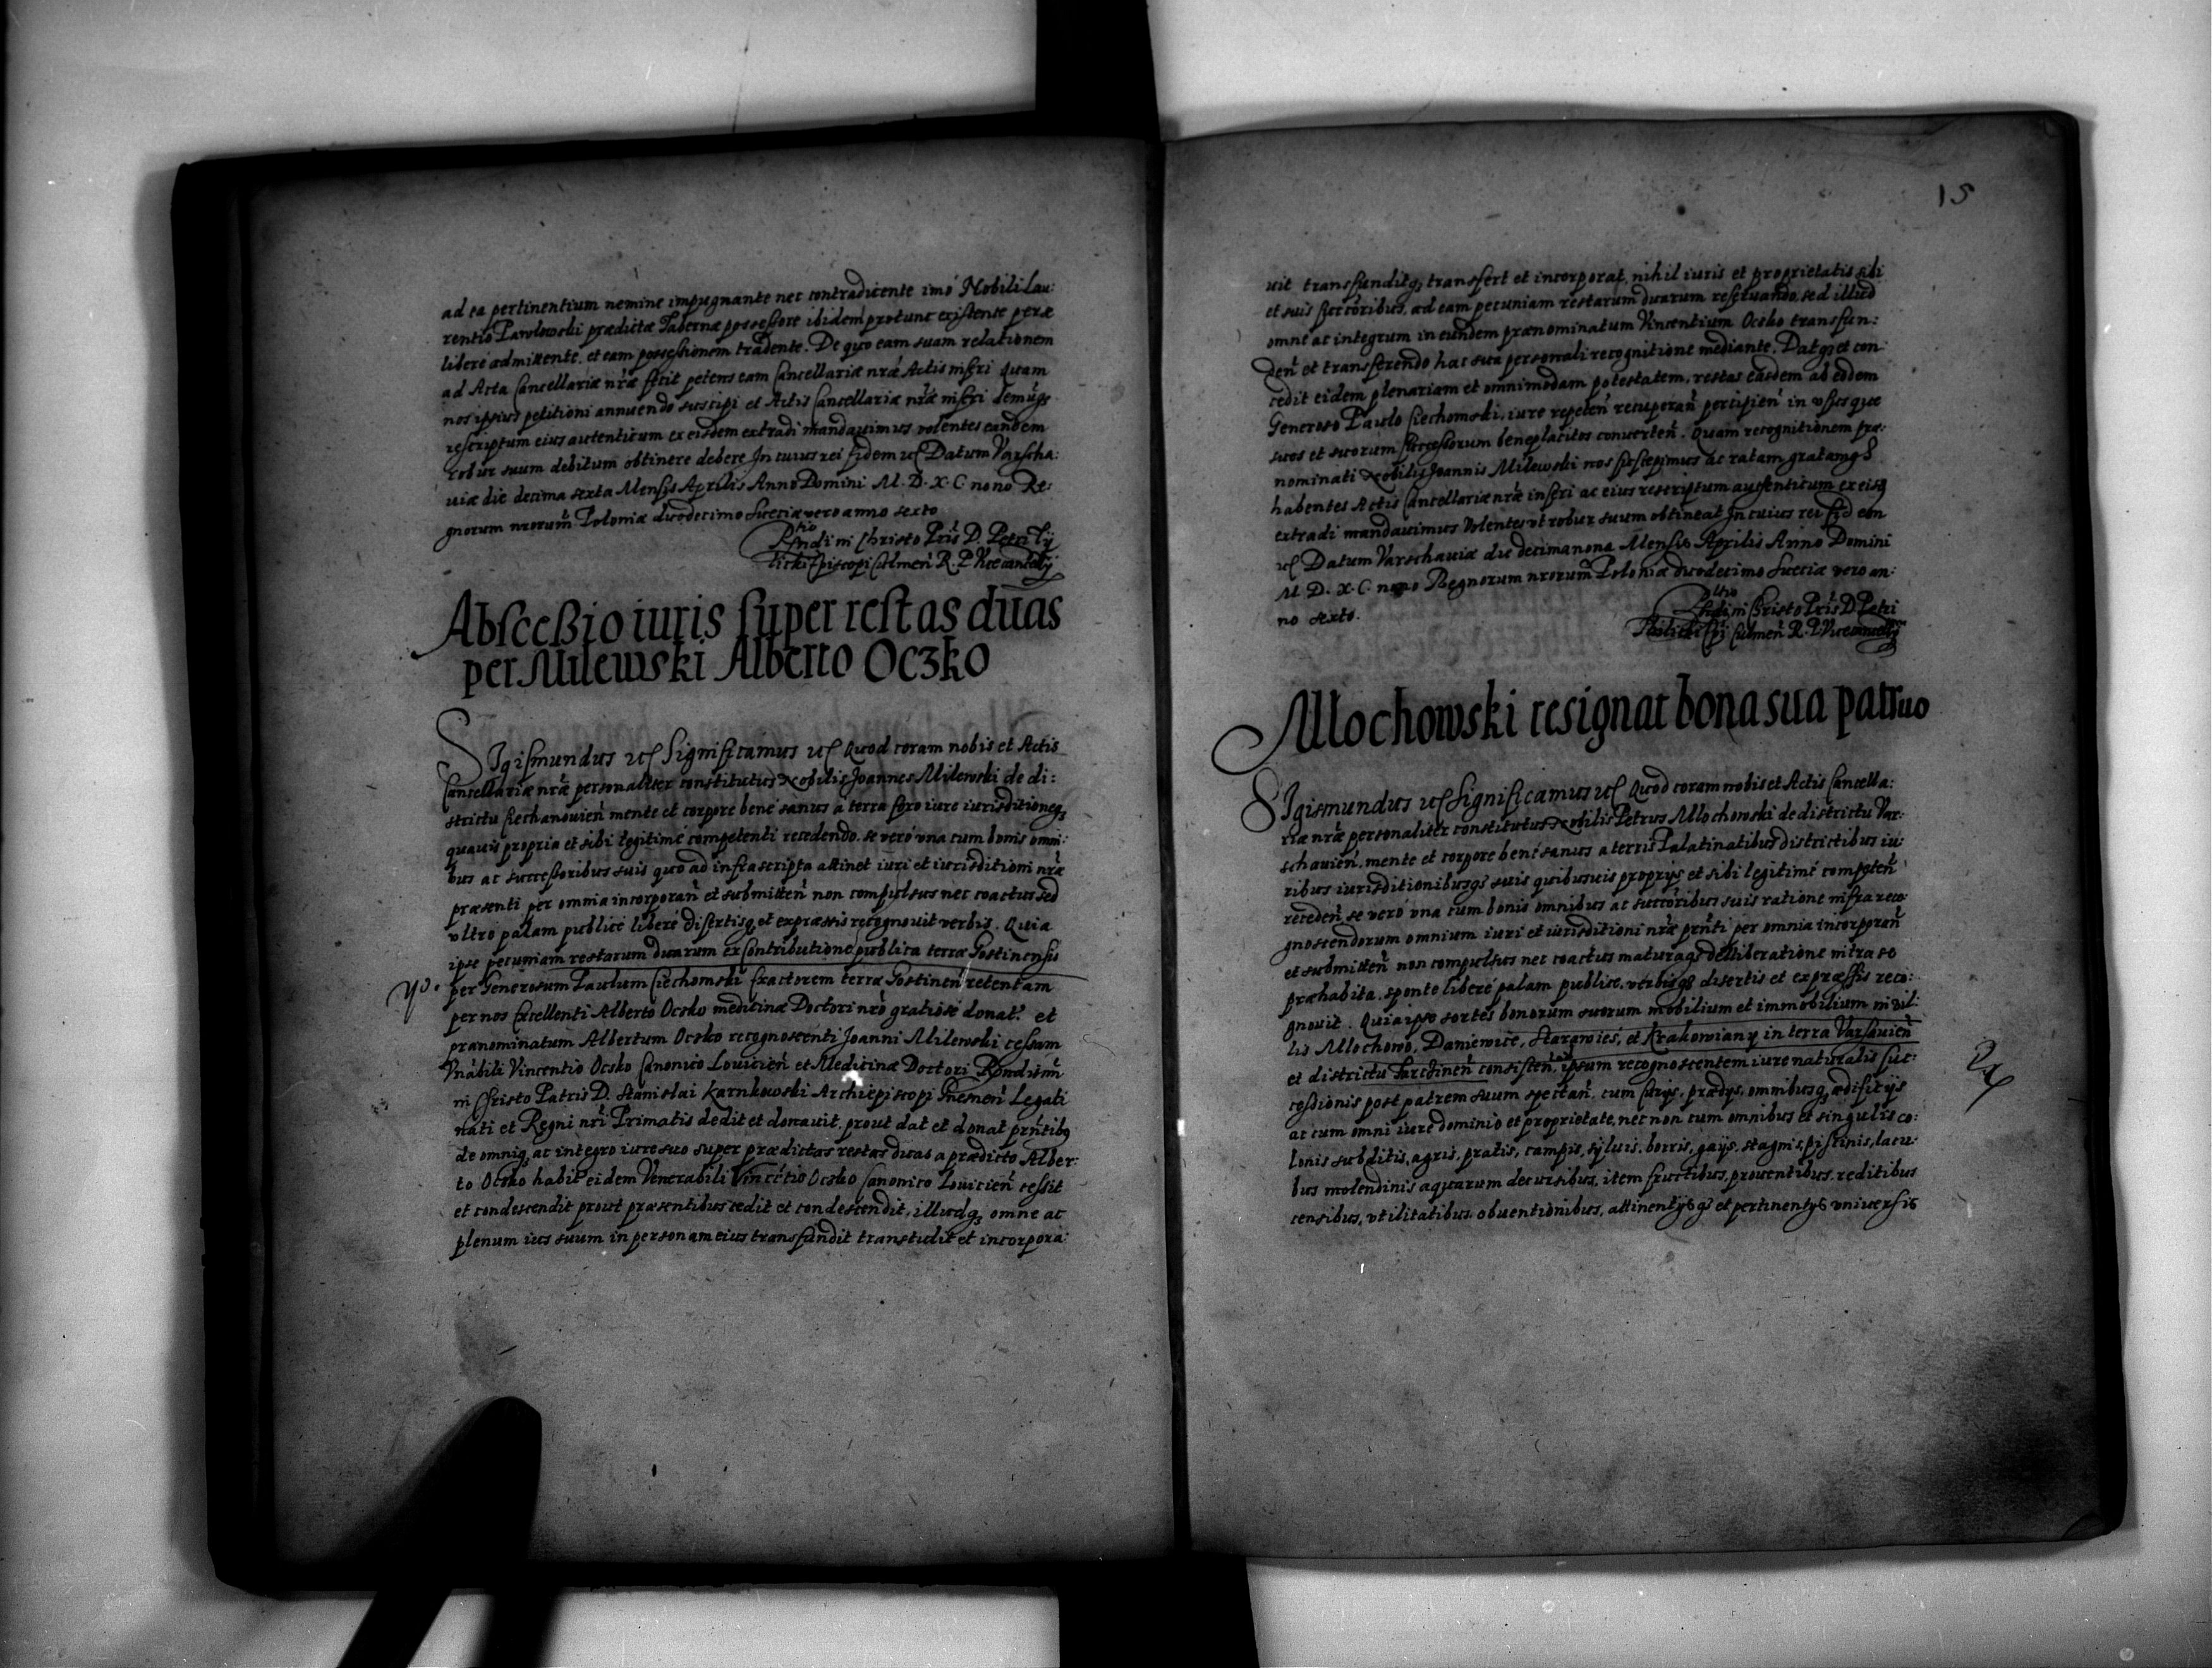 ad ea pertinentium nemine impugnante nec contradicente imò Nobili Lau:
rentio Pawlowski prædictæ Tabernæ possessore ibidem protunc existente per se
liberè admittente, et eam possessionem tradente. De quo eam suam relationem
ad Acta Cancellariæ nr̃æ fecit petens eam Cancellariæ nr̃æ Actis inseri quam
nos ipsius petitioni annuendo suscipi et Actis Cancellariæ nr̃æ inseri demũq;
rescriptum eius autenticum ex eisdem extradi mandauimus volentes eandem
robur suum debitum obtinere debere. In cuius rei fidem etc Datum Varscha:
uiæ die decima sexta Mensis Aprilis Anno Domini M. D. X. C. nono Re:
gnorum nrorum̃ Poloniæ duodecimo Sueciæ vero anno sexto
Rñdi in Christo Pris̃ D. Petri Ty
licki Episcopi Culmeñ R. P. Vicecancellȳ
Abscessio iuris super restas duas
per Milewski Alberto Oczko
Sigismundus etc Significamus etc Quod coram nobis et Actis
Cancellariæ nr̃æ personaliter constitutus Nobilis Joannes Milewski de di:
strictu Ciechanouieñ mente et corpore benè sanus à terra foro iure iurisditioneq;
quauis propria et sibi legitimè competenti recedendo. se verò vna cum bonis omni:
bus ac successoribus suis quo ad infrascripta attinet iuri et iurisditioni nr̃æ
præsenti per omnia incorporañ et submitteñ non compulsus nec coactus sed
vltrò palam publicè liberè disertisq; et expressis recognouit verbis. Quia
ipse pecuniam restarum duarum ex Contributione publica terræ Gostinensis
per Generosum Paulum Ciechomski Exactorem terræ Gostineñ retentam
per nos Excellenti Alberto Oczko medicinæ Doctori nr̃o gratiosè donat. et
prænominatum Albertum Oczko recognoscenti Joanni Milewski cessam
Vnãbili Vincentio Oczko Canonico Louicieñ et Medicinæ Doctori Rñdissimi
in Christo Patris D. Stanislai Karnkowski Archiepiscopi Gnesneñ Legati
nati et Regni nr̃i Primatis dedit et donauit. prout dat et donat prñtibq
de omniq; ac integro iure suo super prædictas restas duas a prædicto Alber:
to Oczko habit eidem Venerabili Vincẽtio Oczko Canonico Louicieñ cessit
et condescendit prout præsentibus cedit et condescendit, illudq; omne ac
plenum ius suum in personam eius transfundit transtulit et incorpora:
15
uit transfunditq; transfert et incorporat, nihil iuris et proprietatis sibi
et suis succõribus, ad eam pecuniam restarum duarum reseruando, sed illud
omne ac integrum in eundem prænominatum Vincentium Oczko transfun:
deñ et transferendo hac sua personali recognitione mediante. Datq; et con:
cedit eidem plenariam et omnimodam potestatem, restas easdem ab eodem
Generoso Paulo Ciechomski, iure repeteñ recuperañ percipieñ in vsus que
suos et suorum successorum beneplacitos conuerteñ. Quam recognitionem præ:
nominati Nobilis Joannis Milewski nos suscepimus ac ratam gratamq;
habentes Actis Cancellariæ nr̃æ inseri ac eius rescriptum authenticum ex eisd
extradi mandauimus Volentes vt robur suum obtineat In cuius rei fid em
etc Datum Varschauiæ die decimanona Mensis Aprilis Anno Domini
M. D. X. C. nono Regnorum nrorum̃ Poloniæ duodecimo Sueciæ vero an:
no sexto.
Rñdi in Christo Pris̃ D. Petri
Tylicki Epi Culmeñ R. P. Vicecancellȳ
Mlochowski resignat bona sua patruo
Sigismundus etc Significamus etc Quod coram nobis et Actis Cancella:
riæ nr̃æ personaliter constitutus Nobilis Petrus Mlochowski de districtu Var:
schauieñ, mente et corpore benè sanus a terris Palatinatibus districtibus iu:
ribus iurisditionibusq; suis quibusuis proprijs et sibi legitimè competeñ
recedeñ se verò vna cum bonis omnibus ac succõribus suis ratione infra reco:
gnoscendorum omnium iuri et iurisditioni nr̃æ prñti per omnia incorporañ
et submitteñ non compulsus nec coactus maturaq; deliberatione intra se
præhabita. sponte liberè palam publicè, verbisq; disertis et expressis reco:
gnouit. Quia ipse sortes bonorum suorum mobilium et immobilium in vil:
lis Mlochowo, Daniewice, Starawieś, et Krakowiany in terra Varsauieñ
et districtu Tarczineñ consisteñ, ipsum recognoscentem iure naturalis suc:
cessionis post patrem suum spectañ, cum curijs, prædijs, omnibusq; ædificijs
ac cum omni iure dominio et proprietate, nec non cum omnibus et singulis co:
lonis subditis, agris, pratis, campis, syluis, borris, gaijs, stagnis, piscinis, lacu:
bus molendinis aquarum decursibus, item fructibus, prouentibus, reditibus
censibus, vtilitatibus, obuentionibus, attinentijsq; et pertinentijs vniuersis